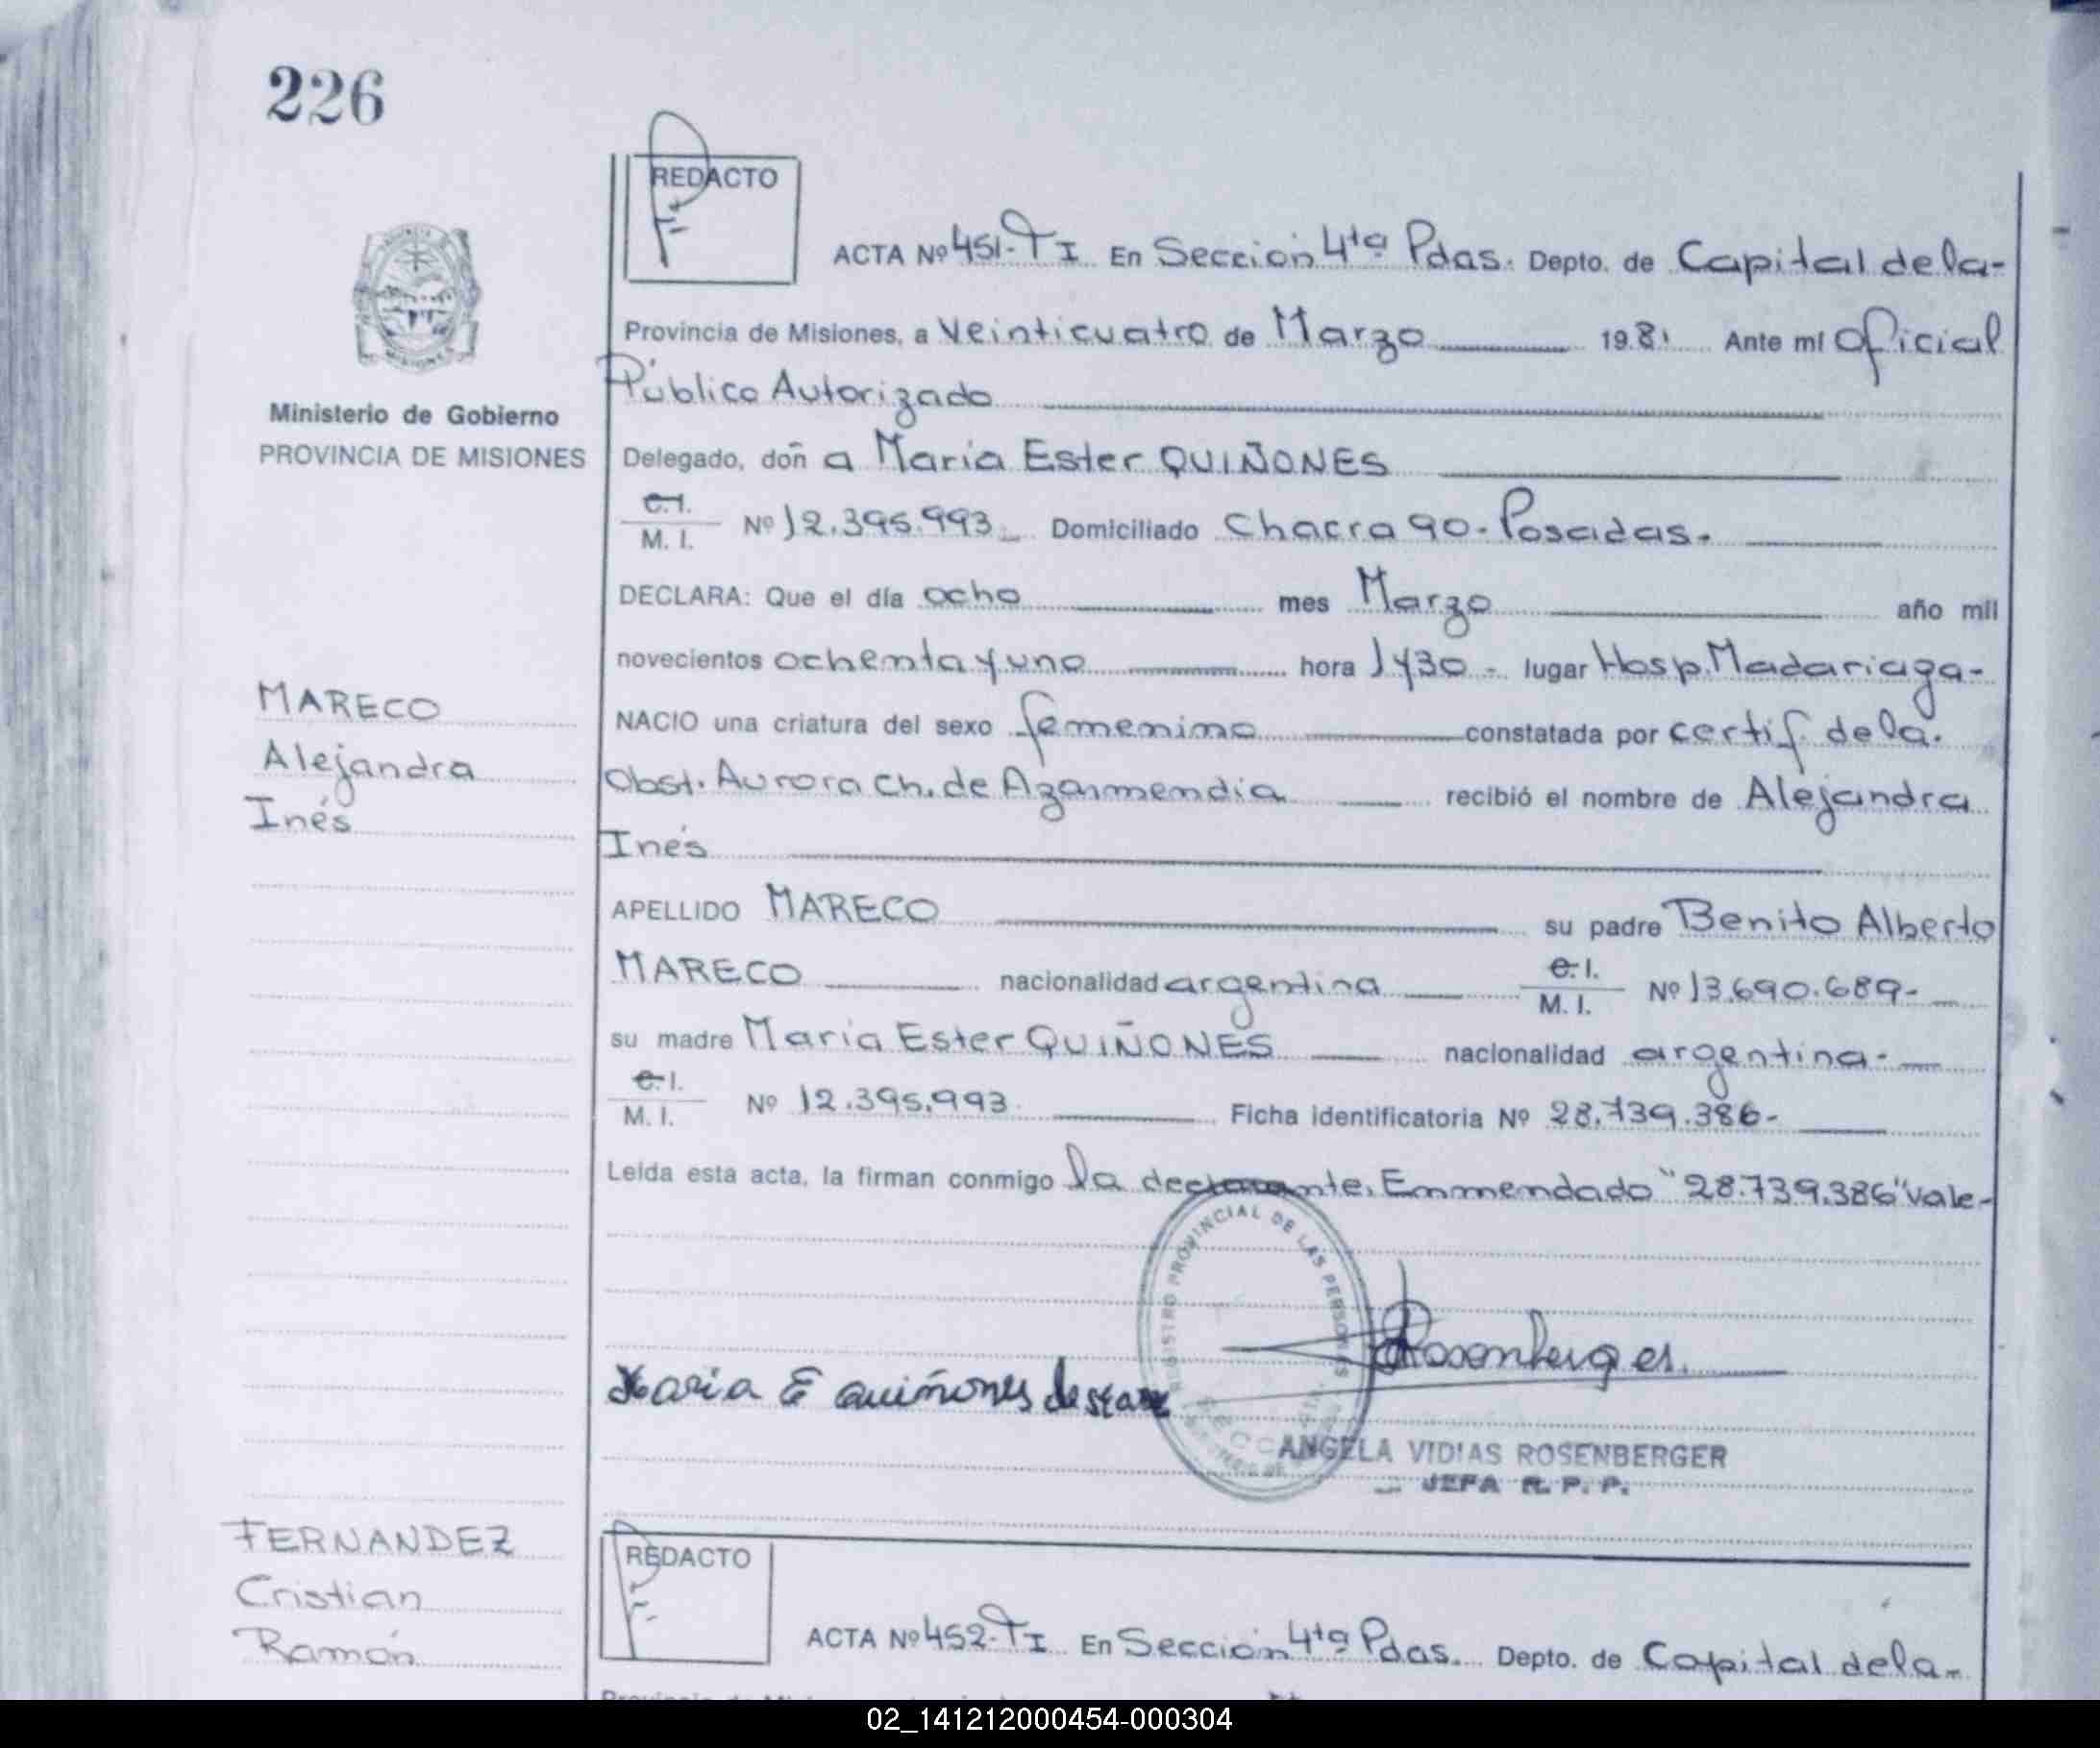 226
REDACTO
ACTA Nº 451-TI En Sección 4ta Pdas. Depto. de Capital de la-
Provincia de Misiones, a Veinticuatro de Marzo 1981 Ante mí Oficial
Público Autorizado
Ministerio de Gobierno
PROVINCIA DE MISIONES
Delegado, doña Maria Ester QUIÑONES
C.I.
M. I. Nº 12.395.993 Domiciliado Chacra 90 - Posadas.
DECLARA: Que el día ocho mes Marzo año mil
novecientos ochenta y uno hora 1430 - lugar Hosp. Madariaga-
MARECO
Alejandra
Inés
NACIO una criatura del sexo femenino constatada por certif. de la.
Obst. Aurora Ch. de Azarmendia recibió el nombre de Alejandra
Inés
APELLIDO MARECO su padre Benito Alberto
MARECO nacionalidad argentina C.I.
M. I. Nº 13.690.689-
su madre Maria Ester QUIÑONES nacionalidad argentina-
C.I.
M. I. Nº 12.395.993 Ficha identificatoria Nº 28.739.386-
Leída esta acta, la firman conmigo la declarante. Enmendado "28.739.386" vale-
REGISTRO PROVINCIAL DE LAS PERSONAS
Maria E quiñones de
Rosenberger.
ANGELA VIDIAS ROSENBERGER
JEFA R. P. P.
FERNANDEZ
Cristian
Ramón
REDACTO
ACTA Nº 452-TI En Sección 4ta Pdas. Depto. de Capital de la-
02_141212000454-000304